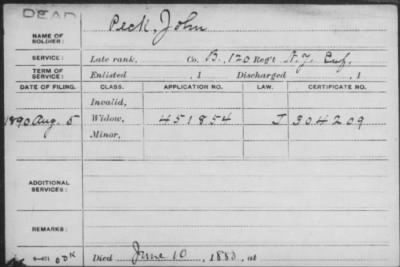 DEAD
NAME OF SOLDIER: Peck, John
SERVICE: Late rank, Co. B, 120 Reg't N.Y. Inf.
TERM OF SERVICE: Enlisted , 1 Discharged , 1
DATE OF FILING. CLASS. APPLICATION NO. LAW. CERTIFICATE NO.
Invalid,
1890 Aug. 5 Widow, 451854 J 304209
Minor,
ADDITIONAL SERVICES:
REMARKS:
Died June 10, 1880, at